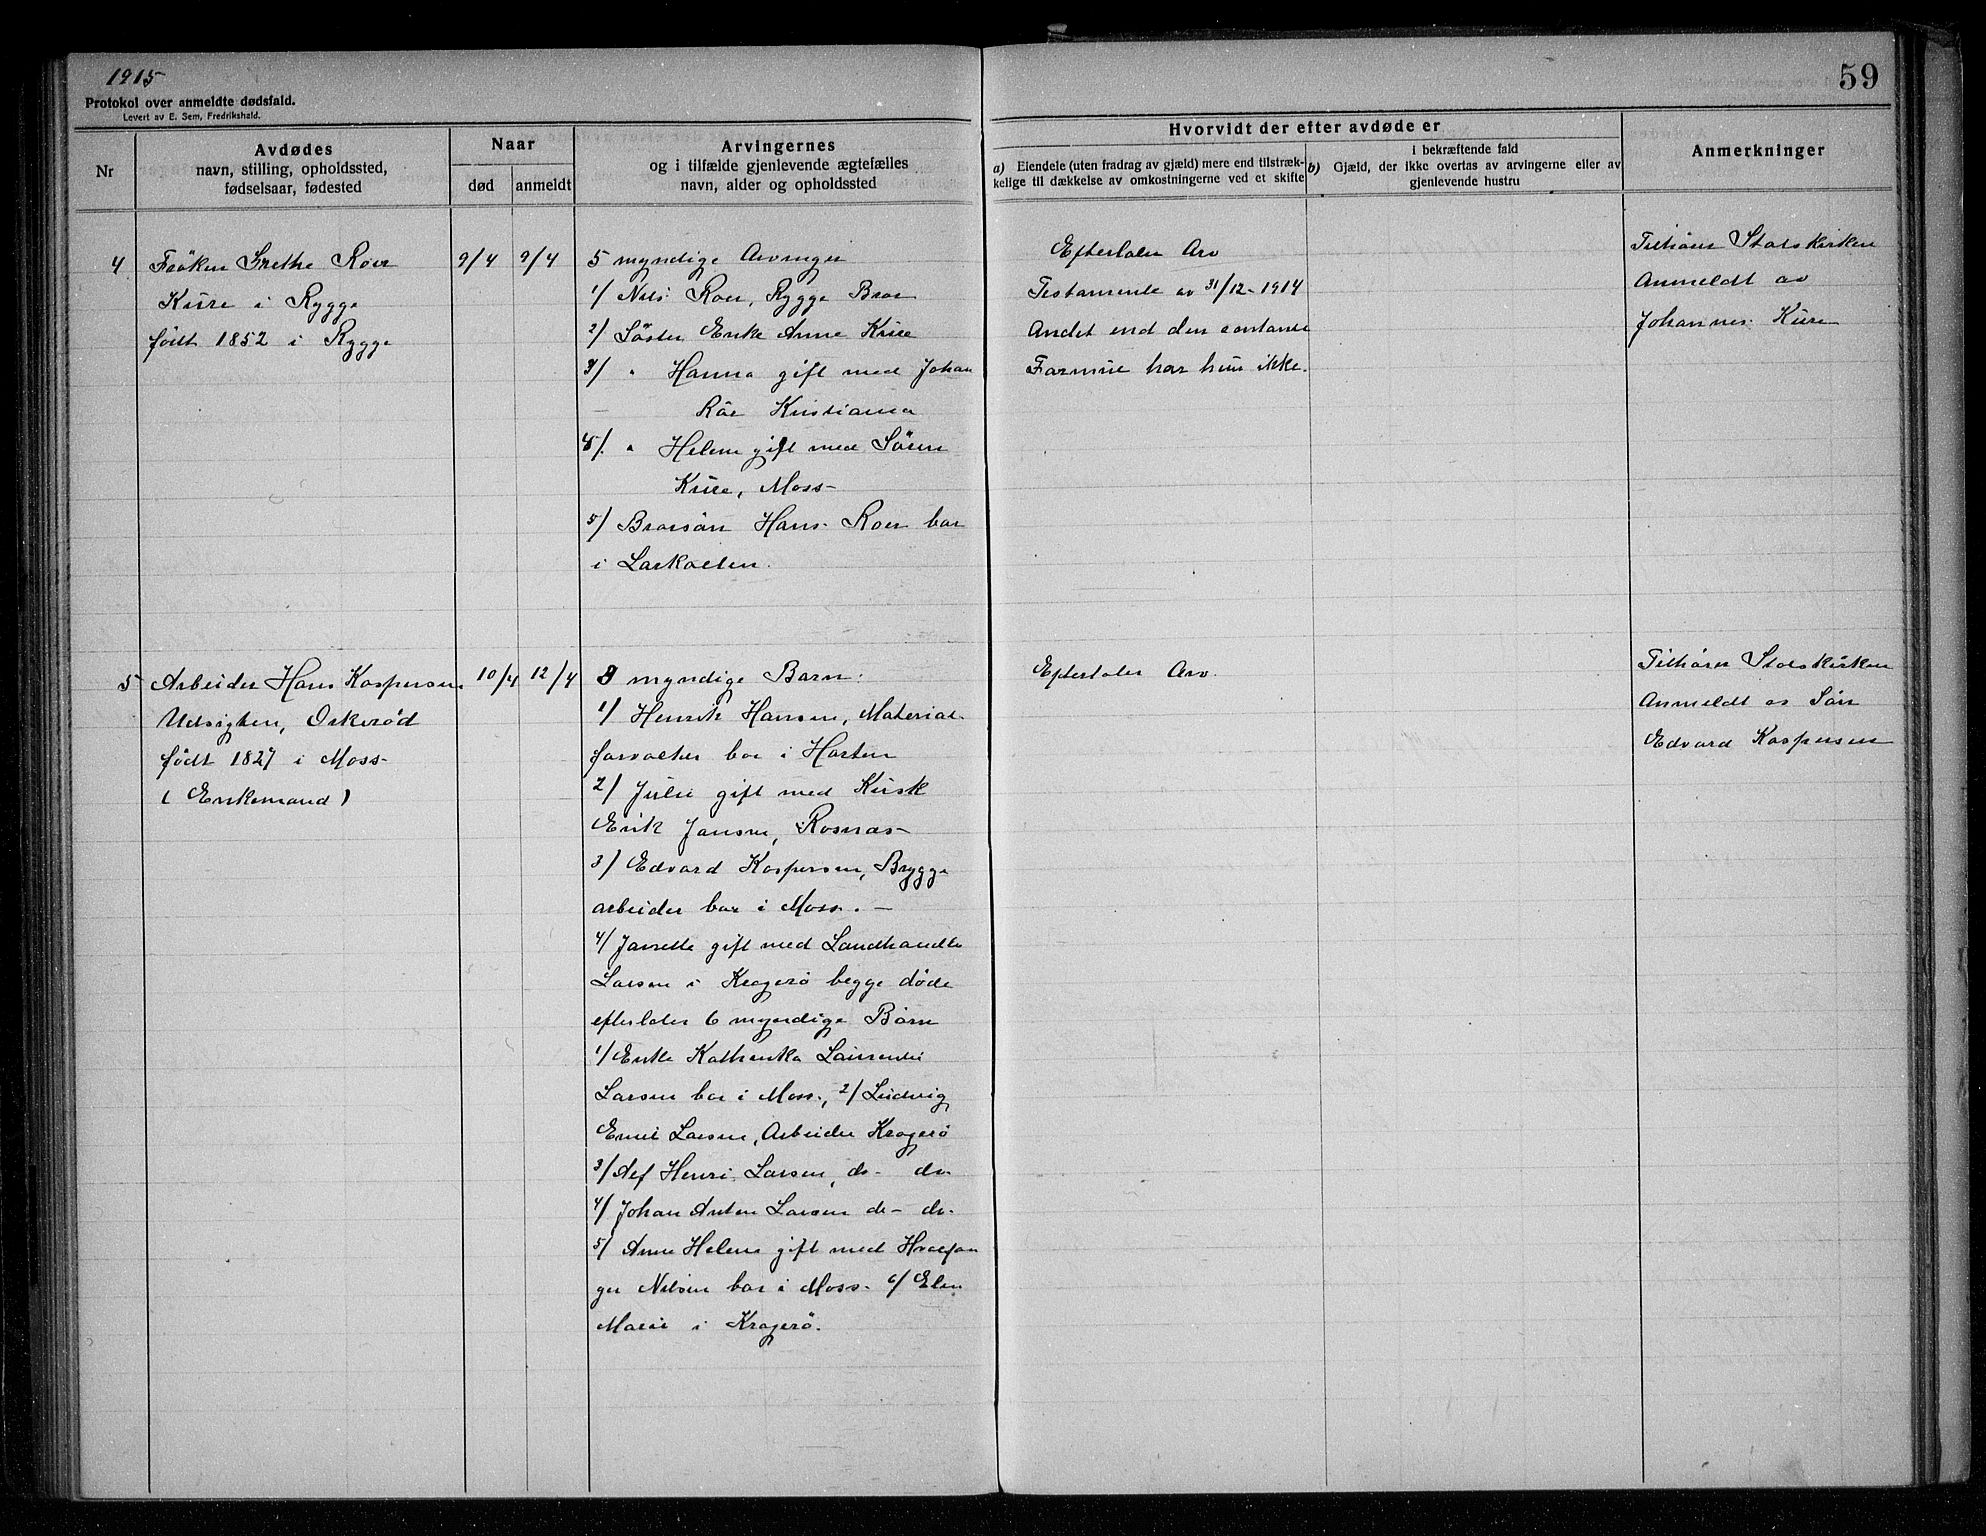 1915
59
Protokol over anmeldte dødsfald.
Levert av E. Sem, Fredrikshald.
Nr
Avdødes
navn, stilling, opholdssted,
fødselsaar, fødested
Naar
død
anmeldt
Arvingernes
og i tilfælde gjenlevende ægtefælles
navn, alder og opholdssted
Hvorvidt der efter avdøde er
a) Eiendele (uten fradrag av gjæld) mere end tilstræk-
kelige til dækkelse av omkostningerne ved et skifte
i bekræftende fald
b) Gjæld, der ikke overtas av arvingerne eller av
gjenlevende hustru
Anmerkninger
4
Frøken Grethe Roer
Kure i Rygge
født 1852 i Rygge
9/4
9/4
5 myndige Arvinger
1/ Nils Roer, Rygge Bror
2/ Søster Enke Anne Kure
3/ " Hanna gift med Johan
Röe Kristiania
4/. " Helene gift med Sören
Kure, Moss
5/ Brorsön Hans Roer bor
i Larkollen.
Efterlater Arv
Testamente av 31/12-1914
Andet end den contante
Formue har hun ikke.
Tilhører Statskirken
Anmeldt av
Johannes Kure
5
Arbeider Hans Kaspersen
Udsigten, Orkeröd
født 1827 i Moss
( Enkemand )
10/4
12/4
3 myndige Barn:
1/ Henrik Hansen, Material-
forvalter bor i Horten
2/ Julie gift med Kusk
Erik Jansen, Rosnas
3/ Edvard Kaspersen, Brygge
arbeider bor i Moss. —
4/ Janette gift med Landhandle
Larsen i Kragerö begge döde
efterlater 6 myndige Börn
1/ Enke Kathenka Laurentse
Larsen bor i Moss., 2/ Ludvig
Emil Larsen, Arbeider Kragerö
3/ Alf Henri Larsen, do- do-
4/ Johan Anton Larsen do- do-
5/ Anne Helene gift med Hvalfan
ger Nilsen bor i Moss. 6/ Elen
Marie i Kragerö.
Efterlater Arv.
Tilhører Statskirken
Anmeldt av Sön
Edvard Kaspersen